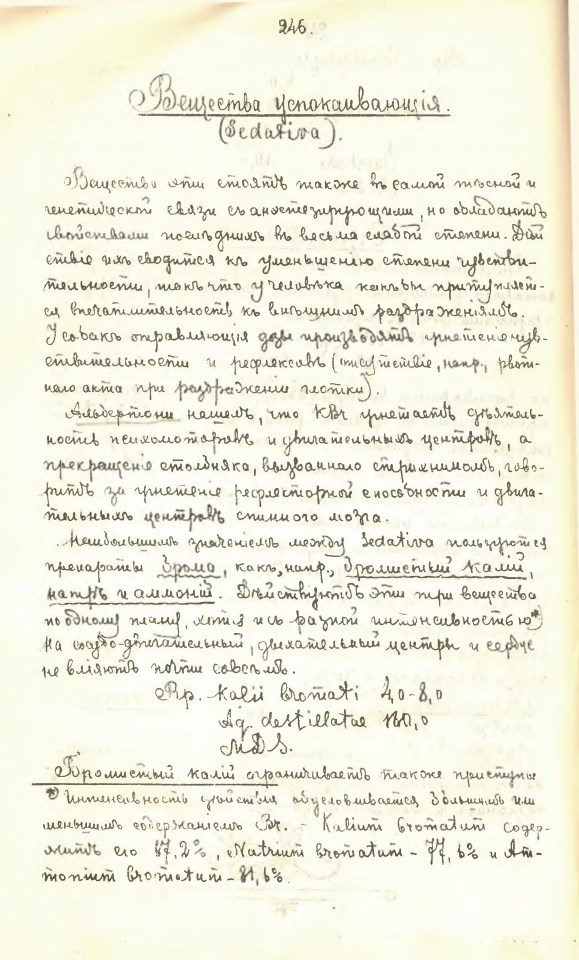 246.
Вещества успокаивающія.
(Sedativa).
Вещества эти стоятъ также въ самой тѣсной и
генетической связи съ анестезирующими, но обладаютъ
свойствами послѣднихъ въ весьма слабой степени. Дѣй
ствіе ихъ сводится къ уменьшенію степени чувстви-
тельности, такъ что у человѣка какъ бы притупляет-
ся впечатлительность къ внѣшнимъ раздраженіямъ.
У собакъ отравляющія дозы производятъ угнетеніе чув-
ствительности и рефлексовъ (отсутствіе, напр., рвот-
наго акта при раздраженіи глотки).
Альбертони нашелъ, что KBr угнетаетъ дѣятель-
ность психомоторовъ и двигательныхъ центровъ, а
прекращеніе столбняка, вызваннаго стрихниномъ, гово-
ритъ за угнетеніе рефлекторной способности и двига-
тельныхъ центровъ спинного мозга.
Наибольшимъ значеніемъ между Sedativa пользуются
препараты брома, какъ, напр., бромистый калій,
натръ и аммоній. Дѣйствуютъ эти три вещества
по одному плану, хотя и съ разной интенсивностью*)
На сосудо-двигательный, дыхательный центры и сердце
не вліяютъ почти совсѣмъ.
Rp. Kalii bromati 4,0-8,0
Aq. destillatae 180,0
MDS.
Бромистый калій ограничиваетъ также приступы
*) Интенсивность дѣйствія обусловливается большимъ или
меньшимъ содержаніемъ Br. - Kalium bromatum содер-
житъ его 67,2%, Natrium bromatum - 77,6% и Am-
monium bromatum - 81,6%.